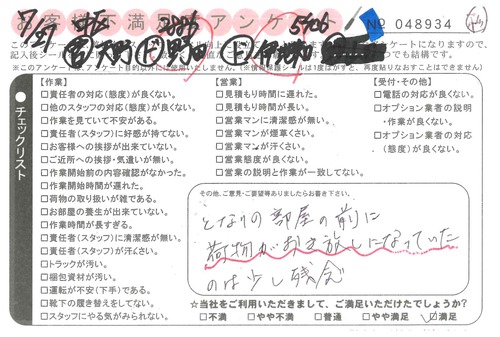 7/27
お客様不満足度アンケート
№ 048934
記入後シール
※このアンケートは、アンケート目的以外には使用いたしません。
チェックリスト
【作業】
□責任者の対応(態度)が良くない。
□他のスタッフの対応(態度)が良くない。
□作業を見ていて不安がある。
□責任者(スタッフ)に好感が持てない。
□お客様への挨拶が出来ていない。
□ご近所への挨拶・気遣いが無い。
□作業前の内容確認がなかった。
□作業開始時間が遅れた。
□荷物の取り扱いが雑である。
□お部屋の養生が出来ていない。
□作業時間が長すぎる。
□責任者(スタッフ)に清潔感が無い。
□責任者(スタッフ)が汗くさい。
□トラックが汚い。
□梱包資材が汚い。
□運転が不安(下手)である。
□靴下の履き替えをしてない。
□スタッフにやる気がみられない。
【営業】
□見積もり時間に遅れた。
□見積もり時間が長い。
□営業マンに清潔感が無い。
□営業マンが煙草くさい。
□営業マンが汗くさい。
□営業態度が良くない。
□営業の説明と作業が一致してない。
【受付・その他】
□電話の対応が良くない。
□オプション業者の説明
・作業が良くない。
□オプション業者の対応
(態度)が良くない。
その他、ご意見・ご要望等ありましたらお書き下さい。
となりの部屋の前に
荷物がおき放しになっていた
のは少し残念
☆当社をご利用いただきまして、ご満足いただけたでしょうか?
□不満 □やや不満 □普通 □やや満足 ☑満足